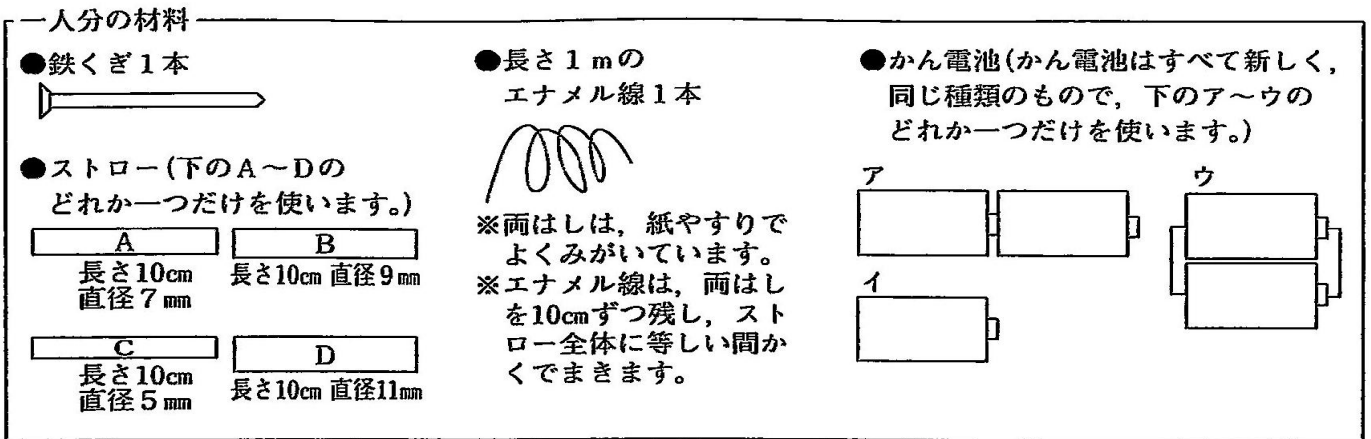 一人分の材料
●鉄くぎ1本
●ストロー(下のA〜Dの
どれか一つだけを使います。)
A
長さ10cm
直径7mm
B
長さ10cm 直径9mm
C
長さ10cm
直径5mm
D
長さ10cm 直径11mm
●長さ1mの
エナメル線1本
※両はしは,紙やすりで
よくみがいています。
※エナメル線は,両はし
を10cmずつ残し,スト
ロー全体に等しい間か
くでまきます。
●かん電池(かん電池はすべて新しく,
同じ種類のもので,下のア〜ウの
どれか一つだけを使います。)
ア
イ
ウ